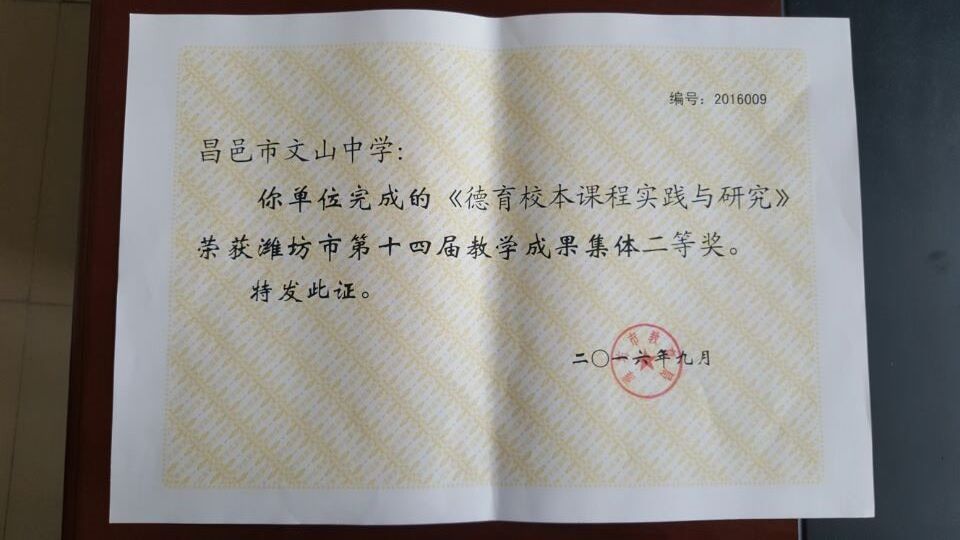 编号：2016009
昌邑市文山中学：
你单位完成的《德育校本课程实践与研究》
荣获潍坊市第十四届教学成果集体二等奖。
特发此证。
二〇一六年九月